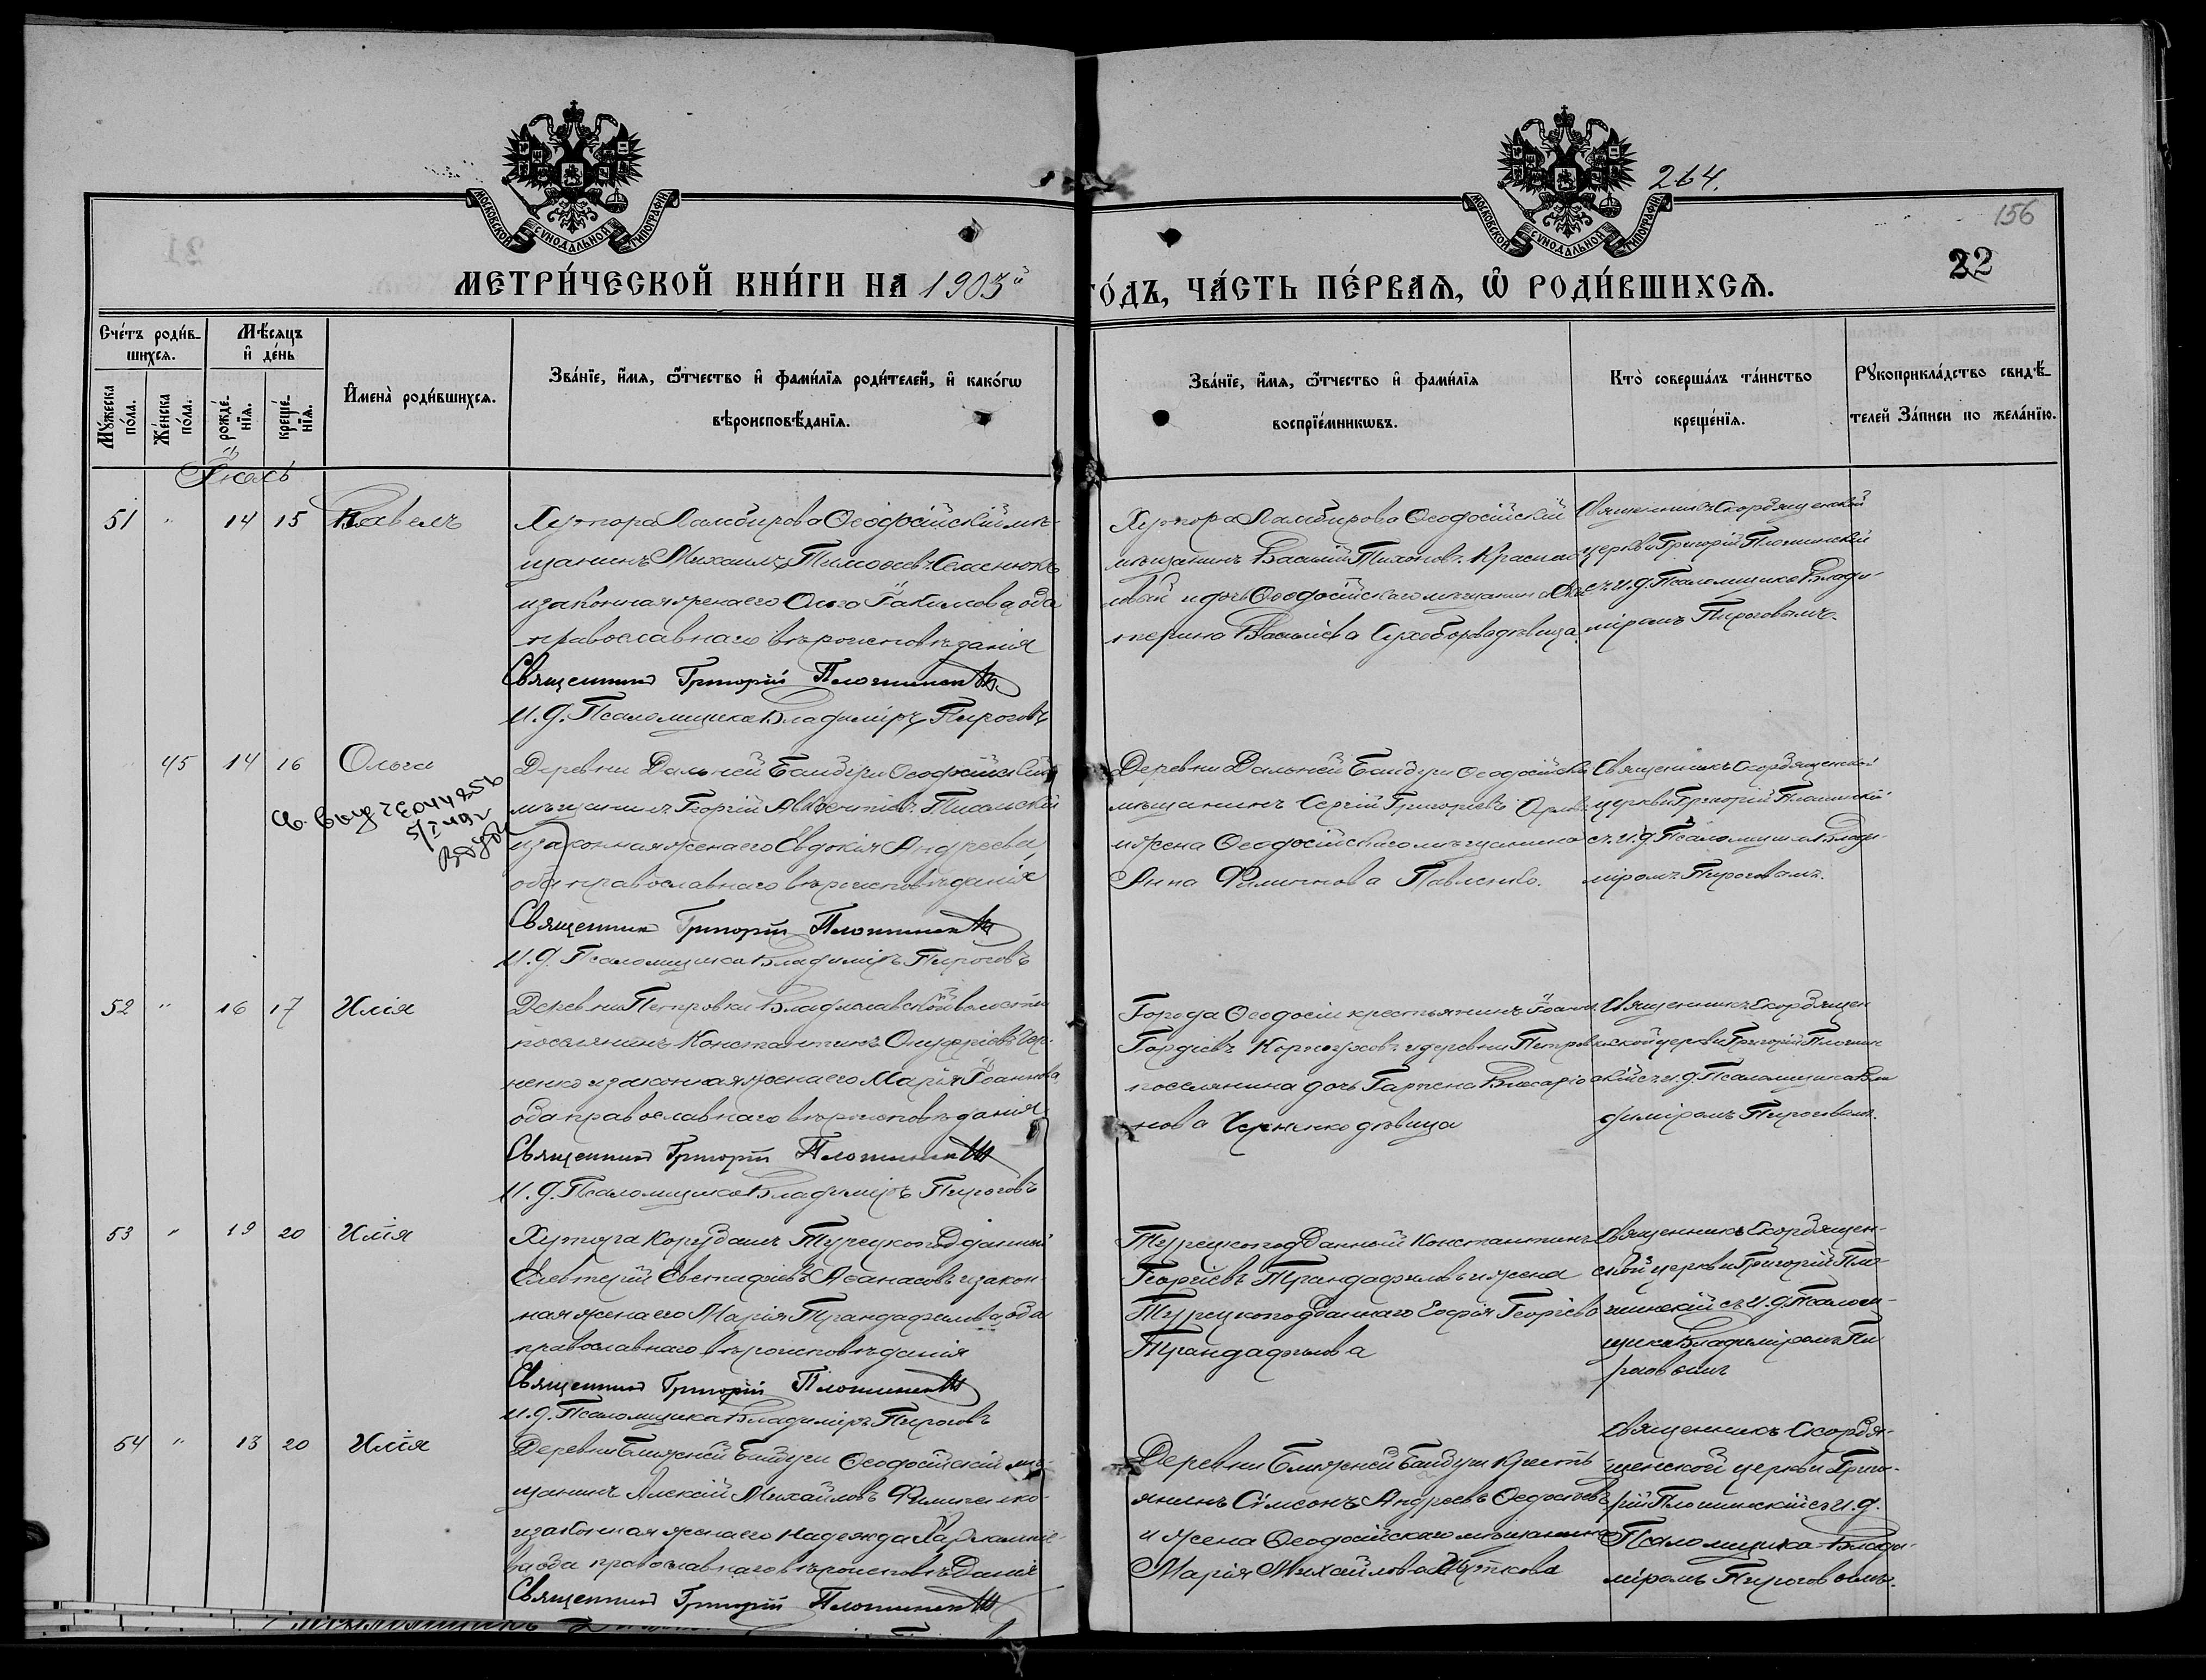 МОСКОВСКОЙ СѴНОДАЛЬНОЙ ТИПОГРАФІИ
МОСКОВСКОЙ СѴНОДАЛЬНОЙ ТИПОГРАФІИ
264.
156
22
МЕТРИ́ЧЕСКОЙ КНИ́ГИ НА 1903й
ГО́ДЪ, ЧА́СТЬ ПЕ́РВАѦ, Ѽ РОДИ́ВШИХСѦ.
Сче́тъ роди́в-
шихсѧ.
Мѣ́сѧцъ
и҆ де́нь
Мꙋ́жеска по́ла.
Же́нска по́ла.
рожде́-
нїѧ.
креще́-
нїѧ.
И҆мена̀ роди́вшихсѧ.
Зва́нїе, и҆́мѧ, ѻ҆́тчество и҆ фами́лїѧ роди́телей, и҆ како́гѡ
вѣроисповѣ́данїѧ.
Зва́нїе, и҆́мѧ, ѻ҆́тчество и҆ фами́лїѧ
воспрїе́мникѡвъ.
Кто̀ соверша́лъ та́инство
креще́нїѧ.
Рꙋкоприкла́дство свидѣ́-
телей За́писи по жела́нїю.
Іюль
51 " 14 15 Павелъ
Хутора Ламбирова Ѳеодосійскій мѣ-
щанинъ Михаилъ Тимоѳеевъ Семенюкъ
и законная жена его Ольга Іакимова, оба
православнаго вѣроисповѣданія
Священникъ Григорій Плотинскій
И. д. Псаломщика Владиміръ Пироговъ
Хутора Ламбирова Ѳеодосійскій
мѣщанинъ Василій Тихоновъ
и дочь Ѳеодосійскаго мѣщанина Ека
терина Васильева дѣвица.
Священникъ Скорбященской
церкви Григорій Плотинскій
съ И. д. Псаломщика Влади-
міромъ Пироговымъ.
45 14 16 Ольга
Деревни Дальней Байбуги Ѳеодосійскій
мѣщанинъ Георгій Авксентіевъ
и законная жена его Евдокія Андреева,
оба православнаго вѣроисповѣданія
Священникъ Григорій Плотинскій
И. д. Псаломщика Владиміръ Пироговъ
Деревни Дальней Байбуги Ѳеодосійскій
мѣщанинъ Сергій Григоріевъ
и жена Ѳеодосійскаго мѣщанина
Анна Филиппова Павленко.
Священникъ Скорбященской
церкви Григорій Плотинскій
съ И. д. Псаломщика Влади-
міромъ Пироговымъ.
52 " 16 17 Илія
Деревни Петровки Владиславской волости
поселянинъ Константинъ Онуфріевъ Чер-
ненко и законная жена его Марія Іоаннова
оба православнаго вѣроисповѣданія
Священникъ Григорій Плотинскій
И. д. Псаломщика Владиміръ Пироговъ
Города Ѳеодосіи крестьянинъ Іоаннъ
Гордіевъ и деревни Петровки
поселянина дочь
нова Черненко дѣвица
Священникъ Скорбящен
ской церкви Григорій Плотин
скій съ И. д. Псаломщика Вла
диміромъ Пироговымъ.
53 " 19 20 Илія
Хутора Турецкоподданный
Елевтерій Аѳанасовъ и закон-
ная жена его Марія Трандафилова, оба
православнаго вѣроисповѣданія
Священникъ Григорій Плотинскій
И. д. Псаломщика Владиміръ Пироговъ
Турецкоподданный Константинъ
Георгіевъ Трандафиловъ и жена
Турецкоподданнаго Софія Георгіева
Трандафилова
Священникъ Скорбящен-
ской церкви Григорій Пло-
тинскій съ И. д. Псалом-
щика Владиміромъ Пи
роговымъ
54 " 13 20 Илія
Деревни Ближней Байбуги Ѳеодосійскій мѣ-
щанинъ Алексій Михайловъ
и законная жена его Надежда Харлампіе-
ва оба православнаго вѣроисповѣданія
Священникъ Григорій Плотинскій
Деревни Ближней Байбуги кресть
янинъ Сѵмеонъ Андреевъ
и жена Ѳеодосійскаго мѣщанина
Марія Михайлова
Священникъ Скорбя-
щенской церкви Григо-
рій Плотинскій съ И. д.
Псаломщика Влади-
міромъ Пироговымъ.